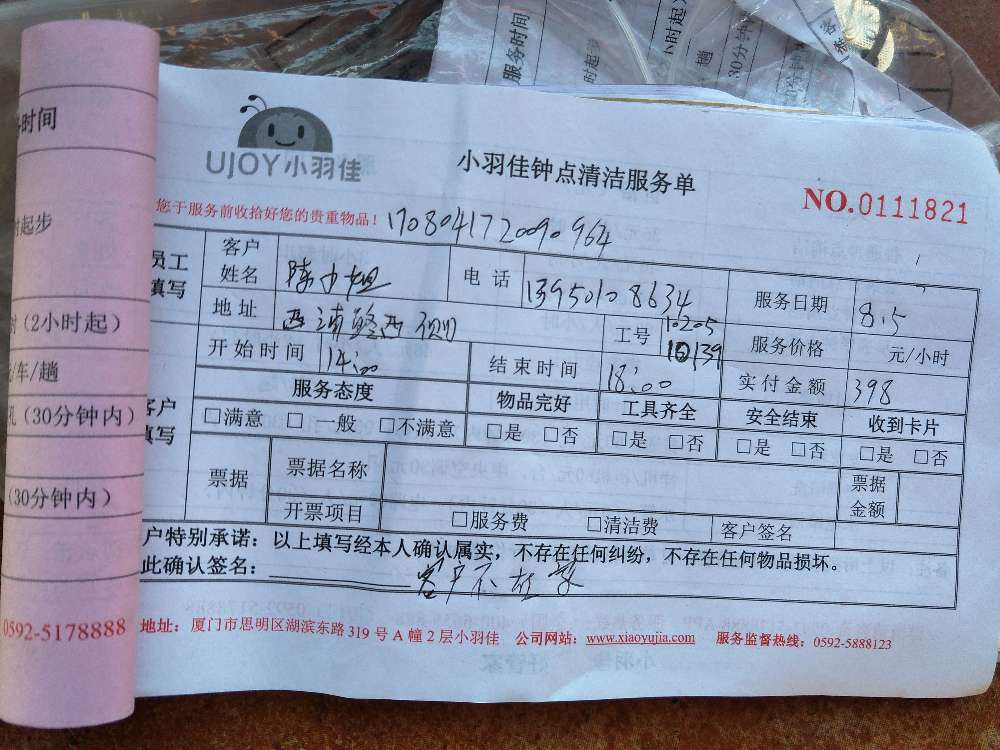 服务时间
30分钟
时间
时起步
时(2小时起)
/车/趟
孔(30分钟内)
(30分钟内)
0592-5178888
UJOY小羽佳
小羽佳钟点清洁服务单
NO.0111821
您于服务前收拾好您的贵重物品!
1708041720090964
员工填写
客户姓名 陈小姐 电话 13950108634 服务日期 8.5
地址 工号 10205 10139 服务价格 元/小时
开始时间 14:00 结束时间 18:00 实付金额 398
客户填写
服务态度 物品完好 工具齐全 安全结束 收到卡片
□满意 □一般 □不满意 □是 □否 □是 □否 □是 □否 □是 □否
票据 票据名称 票据金额
开票项目 □服务费 □清洁费 客户签名
户特别承诺:以上填写经本人确认属实,不存在任何纠纷,不存在任何物品损坏。
此确认签名: 客户不在家
地址:厦门市思明区湖滨东路319号A幢2层小羽佳 公司网站:www.xiaoyujia.com 服务监督热线:0592-5888123